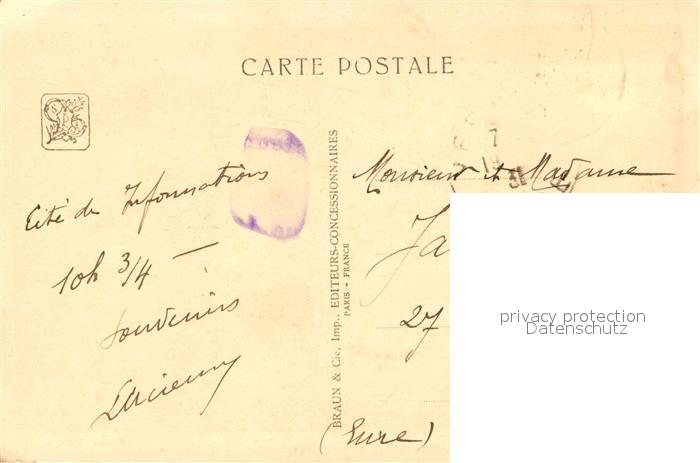 CARTE POSTALE
Cité des Informations
10h 3/4 —
Souvenirs
BRAUN & Cie, Imp., EDITEURS-CONCESSIONNAIRES
PARIS - FRANCE
7
Monsieur et Madame
Ja
27
(Eure)
privacy protection
Datenschutz